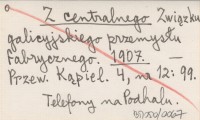 Z centralnego Związku
galicyjskiego przemysłu
fabrycznego. 1907. —
Przew. Kąpiel. 4, na 12: 99.
Telefony na Podhalu.